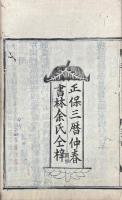 正保三曆仲春
書林余氏仝梓